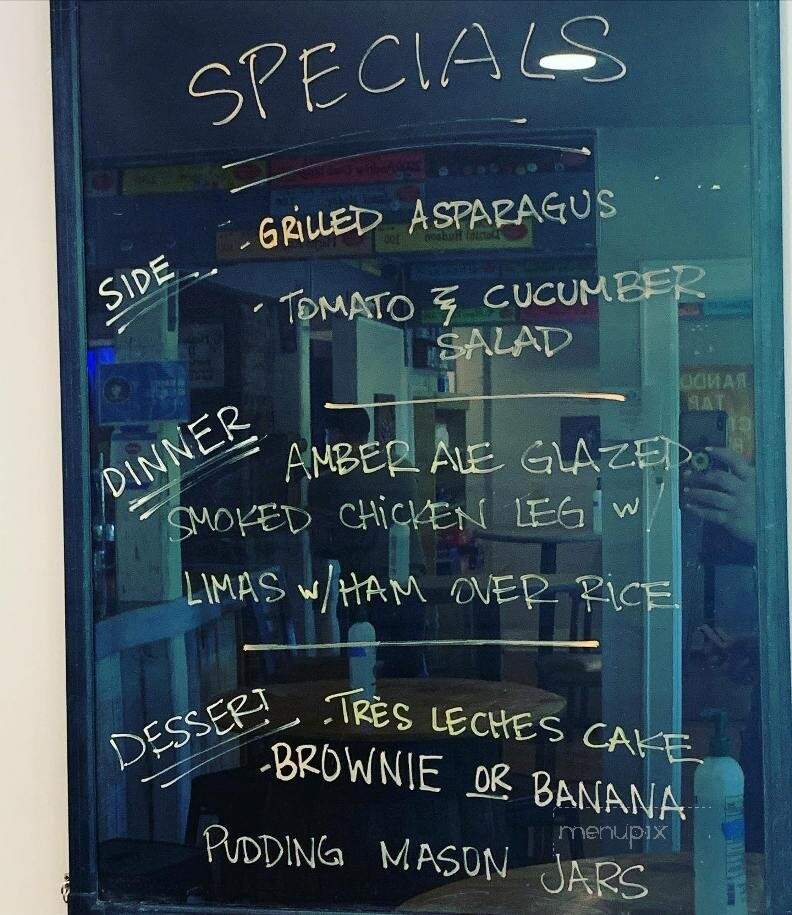 SPECIALS
SIDE
- GRILLED ASPARAGUS
- TOMATO & CUCUMBER
SALAD
DINNER
AMBER ALE GLAZED
SMOKED CHICKEN LEG w/
LIMAS w/HAM OVER RICE
DESSERT
-TRÈS LECHES CAKE
-BROWNIE OR BANANA
PUDDING MASON JARS
menupix